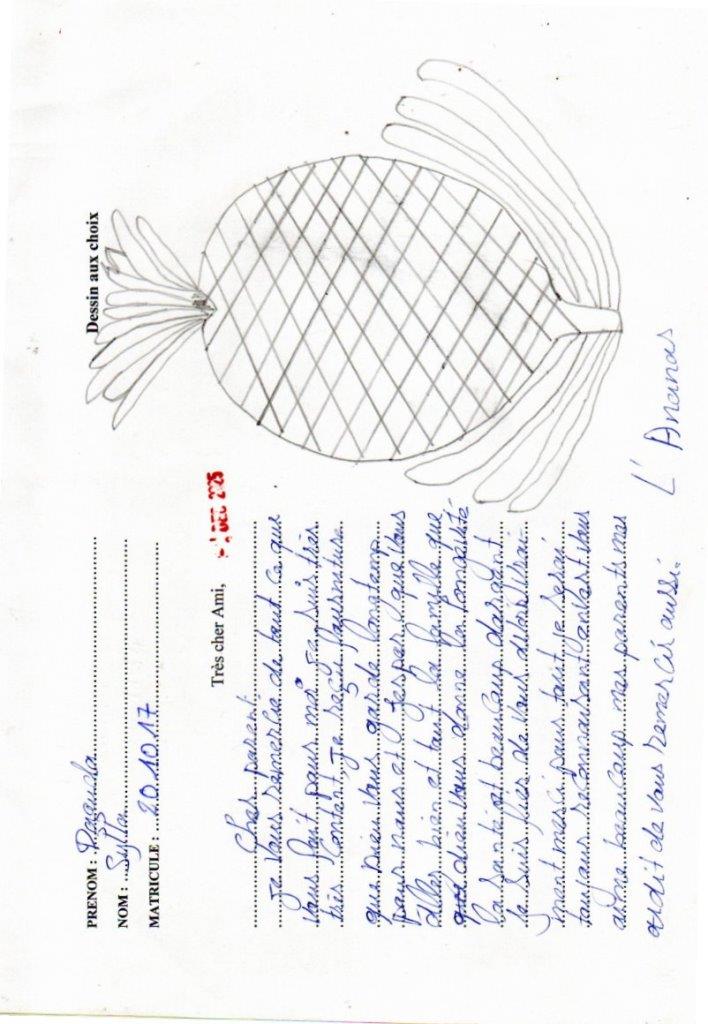 PRENOM : Dagunda
NOM : Sylla
MATRICULE : 201017
Dessin aux choix
DEC 2025
Très cher Ami,
Cher parent
Je vous remercie de tout ce que
vous fait pour moi je suis très
très contant, je reçu fourniture
que Dieu vous garde longtemp
pour nous et j'esper que vous
allez bien et tout la famille que
dieu vous donne la longevité
la santé et beaucoup d'argent
Je suis fier de vous
ment merci pour tout je serai
toujours reconnaissant envert vous
aime beaucoup mes parents
ordit de vous remerci aussi.
L'Ananas